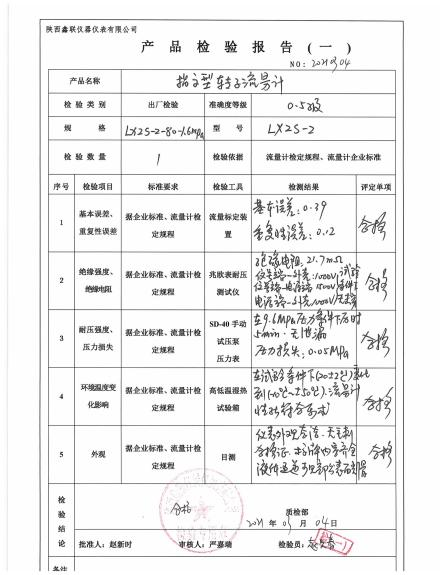 陕西鑫联仪器仪表有限公司
产 品 检 验 报 告 ( 一 )
NO: 20210304
产品名称 指示型转子流量计
检 验 类 别 出厂检验 准确度等级 0.5级
规 格 LXZS-2-80-1.6MPa 型 号 LXZS-2
检 验 数 量 1 检验依据 流量计检定规程、流量计企业标准
序号 检验项目 标准要求 检验工具 检测结果 评定单项
1 基本误差、重复性误差 据企业标准、流量计检定规程 流量标定装置 基本误差: 0.39 重复性误差: 0.12 合格
2 绝缘强度、绝缘电阻 据企业标准、流量计检定规程 兆欧表耐压测试仪 绝缘电阻: 21.7mΩ 合格
3 耐压强度、压力损失 据企业标准、流量计检定规程 SD-40 手动试压泵压力表 在9.6MPa压力条件下历时5min,无泄漏 压力损失: 0.05MPa 合格
4 环境温度变化影响 据企业标准、流量计检定规程 高低温湿热试验箱 在试验条件下(20±2℃)变化到(-10℃~+50℃),流量计性能符合要求 合格
5 外观 据企业标准、流量计检定规程 目测 合格
检验结论 合格
质检部
2021 年 03 月 04 日
批准人: 赵新时 审核人: 严嘉瑞 检验员:
备注